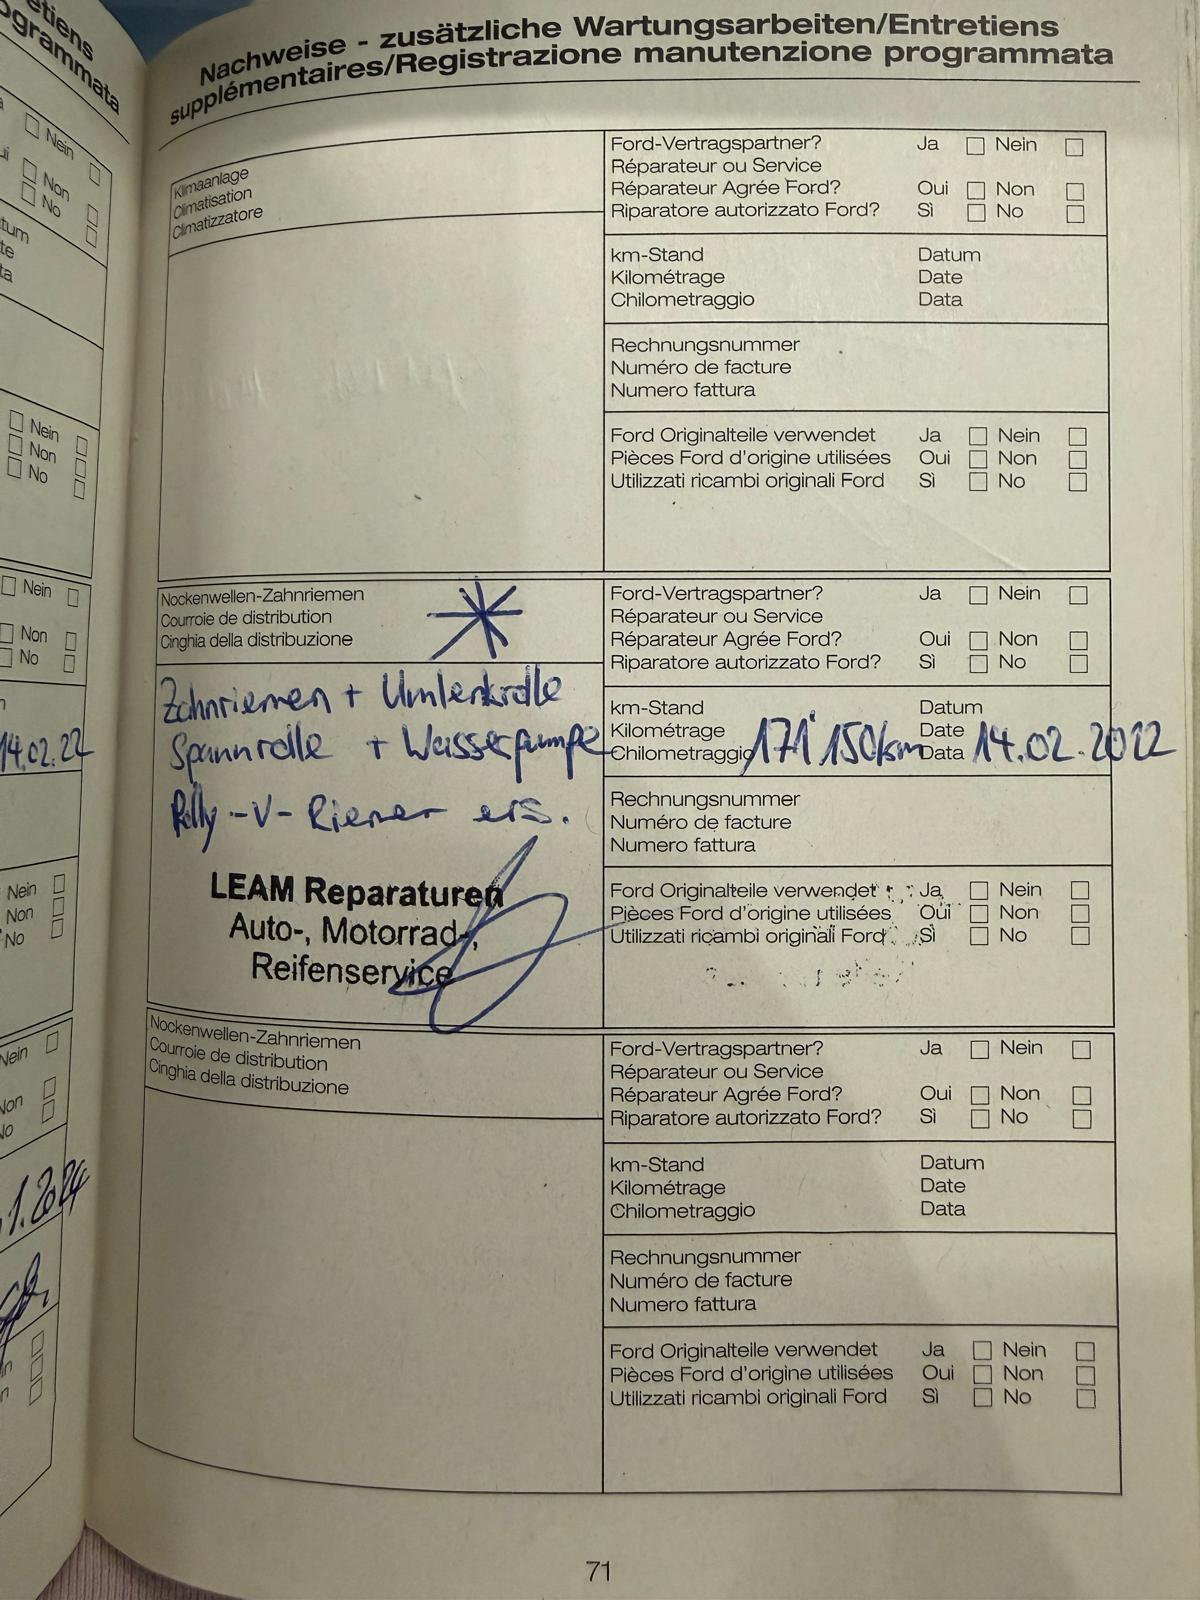 etiens
ogrammata
Nein
Non
No
tum
te
ta
Nein
Non
No
Nein
Non
No
14.02.22
Nein
Non
No
Nein
Non
No
1.2024
Nachweise - zusätzliche Wartungsarbeiten/Entretiens
supplémentaires/Registrazione manutenzione programmata
Klimaanlage
Climatisation
Climatizzatore
Ford-Vertragspartner? Ja Nein
Réparateur ou Service
Réparateur Agrée Ford? Oui Non
Riparatore autorizzato Ford? Sì No
km-Stand Datum
Kilométrage Date
Chilometraggio Data
Rechnungsnummer
Numéro de facture
Numero fattura
Ford Originalteile verwendet Ja Nein
Pièces Ford d'origine utilisées Oui Non
Utilizzati ricambi originali Ford Sì No
Nockenwellen-Zahnriemen
Courroie de distribution
Cinghia della distribuzione
Zahnriemen + Umlenkrolle
Spannrolle + Wasserpumpe
Polly-V-Riemen ers.
LEAM Reparaturen
Auto-, Motorrad-,
Reifenservice
Ford-Vertragspartner? Ja Nein
Réparateur ou Service
Réparateur Agrée Ford? Oui Non
Riparatore autorizzato Ford? Sì No
km-Stand Datum
Kilométrage Date
Chilometraggio 171'150km Data 14.02.2022
Rechnungsnummer
Numéro de facture
Numero fattura
Ford Originalteile verwendet Ja Nein
Pièces Ford d'origine utilisées Oui Non
Utilizzati ricambi originali Ford Sì No
Nockenwellen-Zahnriemen
Courroie de distribution
Cinghia della distribuzione
Ford-Vertragspartner? Ja Nein
Réparateur ou Service
Réparateur Agrée Ford? Oui Non
Riparatore autorizzato Ford? Sì No
km-Stand Datum
Kilométrage Date
Chilometraggio Data
Rechnungsnummer
Numéro de facture
Numero fattura
Ford Originalteile verwendet Ja Nein
Pièces Ford d'origine utilisées Oui Non
Utilizzati ricambi originali Ford Sì No
71